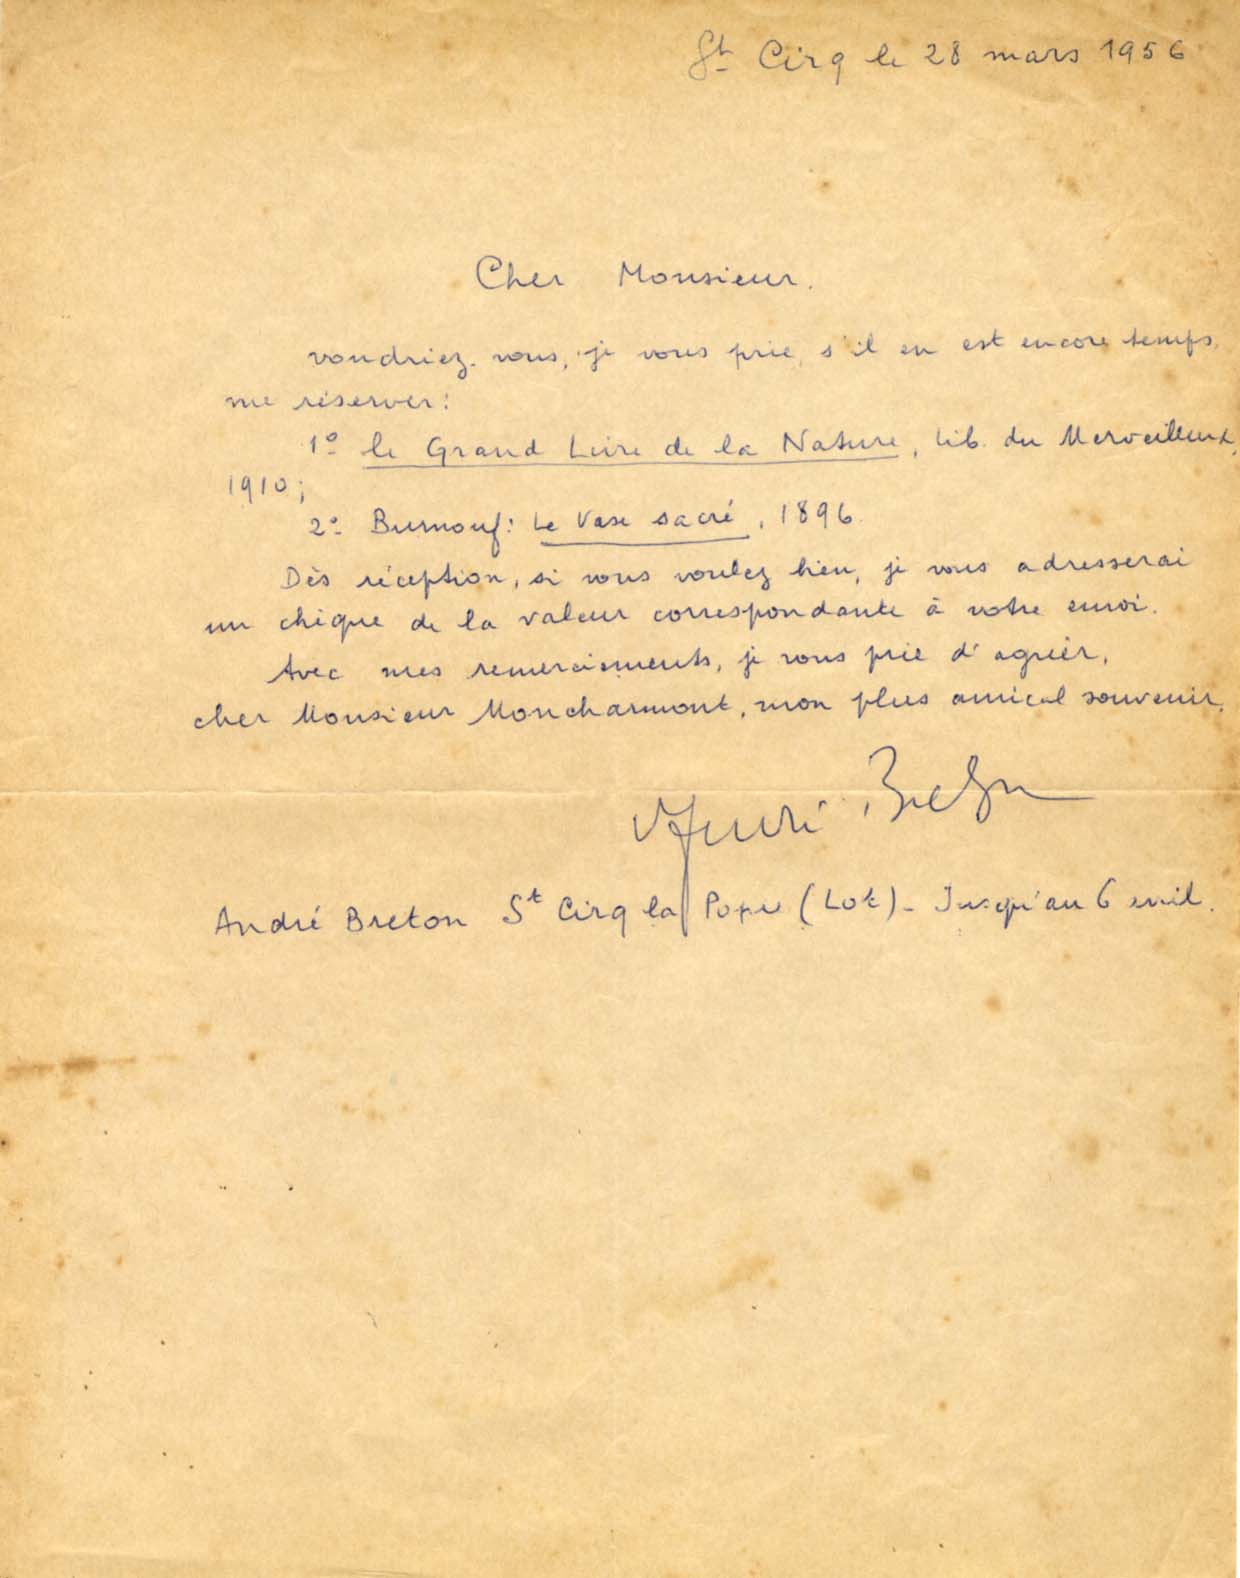 St Cirq le 28 mars 1956
Cher Monsieur.
voudriez-vous, je vous prie, s'il en est encore temps,
me réserver:
1º le Grand Livre de la Nature, lib. du Merveilleux,
1910;
2º Burnouf: Le Vase sacré, 1896.
Dès réception, si vous voulez bien, je vous adresserai
un chèque de la valeur correspondante à votre envoi.
Avec mes remerciements, je vous prie d'agréer,
cher Monsieur Moncharmont, mon plus amical souvenir.
André Breton
André Breton St Cirq la Popie (Lot) - Jusqu'au 6 avril.